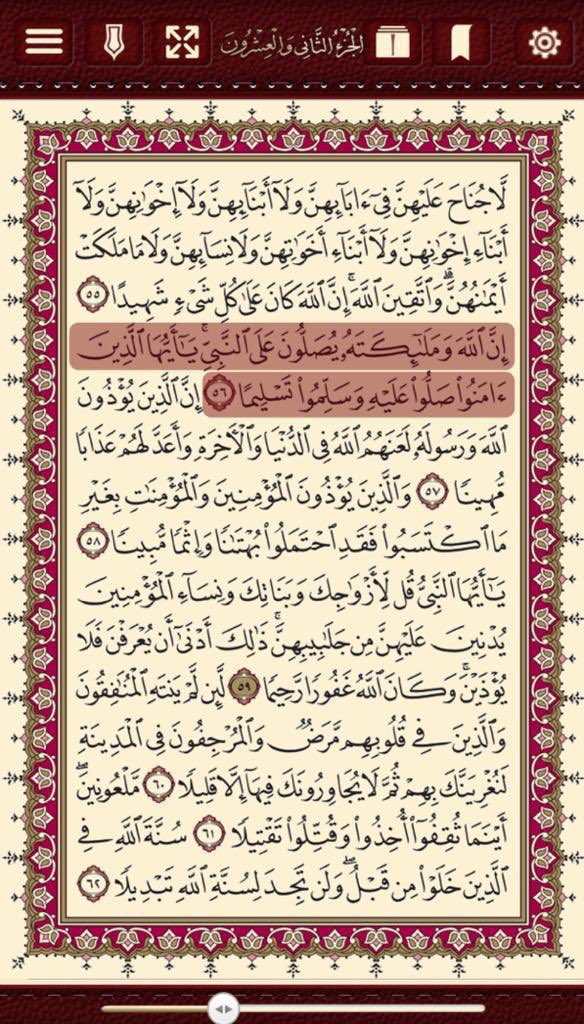 الجزء الثاني والعشرون
لَّا جُنَاحَ عَلَيْهِنَّ فِىٓ ءَابَآئِهِنَّ وَلَآ أَبْنَآئِهِنَّ وَلَآ إِخْوَٰنِهِنَّ وَلَآ
أَبْنَآءِ إِخْوَٰنِهِنَّ وَلَآ أَبْنَآءِ أَخَوَٰتِهِنَّ وَلَا نِسَآئِهِنَّ وَلَا مَا مَلَكَتْ
أَيْمَٰنُهُنَّۗ وَٱتَّقِينَ ٱللَّهَۚ إِنَّ ٱللَّهَ كَانَ عَلَىٰ كُلِّ شَىْءٍ شَهِيدًا ٥٥
إِنَّ ٱللَّهَ وَمَلَٰٓئِكَتَهُۥ يُصَلُّونَ عَلَى ٱلنَّبِىِّۚ يَٰٓأَيُّهَا ٱلَّذِينَ
ءَامَنُوا۟ صَلُّوا۟ عَلَيْهِ وَسَلِّمُوا۟ تَسْلِيمًا ٥٦ إِنَّ ٱلَّذِينَ يُؤْذُونَ
ٱللَّهَ وَرَسُولَهُۥ لَعَنَهُمُ ٱللَّهُ فِى ٱلدُّنْيَا وَٱلْءَاخِرَةِ وَأَعَدَّ لَهُمْ عَذَابًا
مُّهِينًا ٥٧ وَٱلَّذِينَ يُؤْذُونَ ٱلْمُؤْمِنِينَ وَٱلْمُؤْمِنَٰتِ بِغَيْرِ
مَا ٱكْتَسَبُوا۟ فَقَدِ ٱحْتَمَلُوا۟ بُهْتَٰنًا وَإِثْمًا مُّبِينًا ٥٨
يَٰٓأَيُّهَا ٱلنَّبِىُّ قُل لِّأَزْوَٰجِكَ وَبَنَاتِكَ وَنِسَآءِ ٱلْمُؤْمِنِينَ
يُدْنِينَ عَلَيْهِنَّ مِن جَلَٰبِيبِهِنَّۚ ذَٰلِكَ أَدْنَىٰٓ أَن يُعْرَفْنَ فَلَا
يُؤْذَيْنَۗ وَكَانَ ٱللَّهُ غَفُورًا رَّحِيمًا ٥٩ لَّئِن لَّمْ يَنتَهِ ٱلْمُنَٰفِقُونَ
وَٱلَّذِينَ فِى قُلُوبِهِم مَّرَضٌ وَٱلْمُرْجِفُونَ فِى ٱلْمَدِينَةِ
لَنُغْرِيَنَّكَ بِهِمْ ثُمَّ لَا يُجَاوِرُونَكَ فِيهَآ إِلَّا قَلِيلًا ٦٠ مَّلْعُونِينَۖ
أَيْنَمَا ثُقِفُوٓا۟ أُخِذُوا۟ وَقُتِّلُوا۟ تَقْتِيلًا ٦١ سُنَّةَ ٱللَّهِ فِى
ٱلَّذِينَ خَلَوْا۟ مِن قَبْلُۖ وَلَن تَجِدَ لِسُنَّةِ ٱللَّهِ تَبْدِيلًا ٦٢